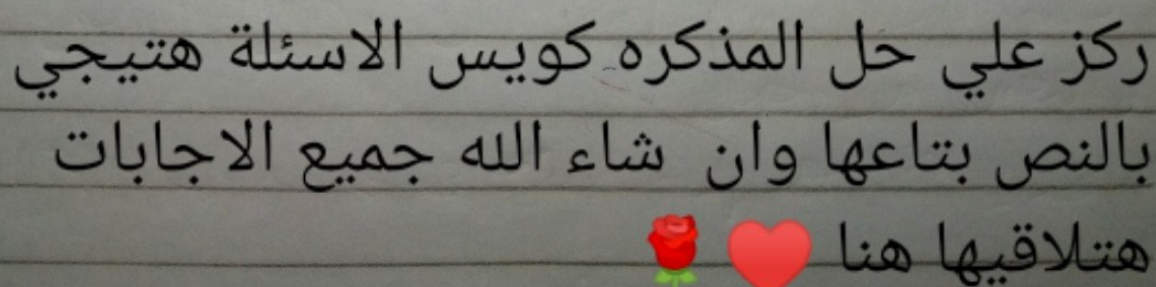 ركز علي حل المذكره كويس الاسئلة هتيجي
بالنص بتاعها وان شاء الله جميع الاجابات
هتلاقيها هنا ♥️🌹